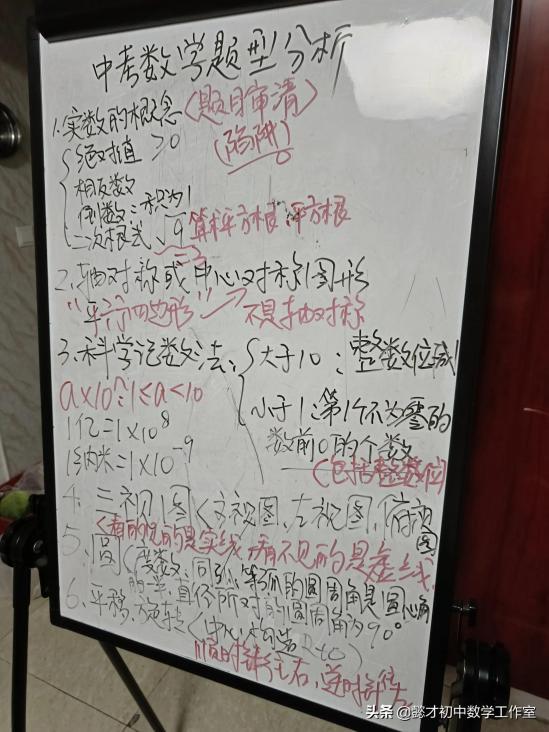 中考数学题型分析
1.实数的概念(题目审清)
绝对值≥0 (陷阱)
相反数
倒数:积为1
二次根式、√9 算术平方根、平方根
2.轴对称或中心对称图形
"平行四边形"→不是轴对称
3.科学记数法、大于10:整数位减1
a×10ⁿ:1≤a<10
小于1:第1个不为零的
1亿=1×10⁸ 数前0的个数
1纳米=1×10⁻⁹ (包括整数位)
4.三视图(主视图、左视图、俯视图
(看的见的是实线,看不见的是虚线
5、圆(度数、同弧、等弧的圆周角是圆心角
一半、直径所对的圆周角为90°
6、平移、旋转
顺时针 右,逆时针
头条@懿才初中数学工作室